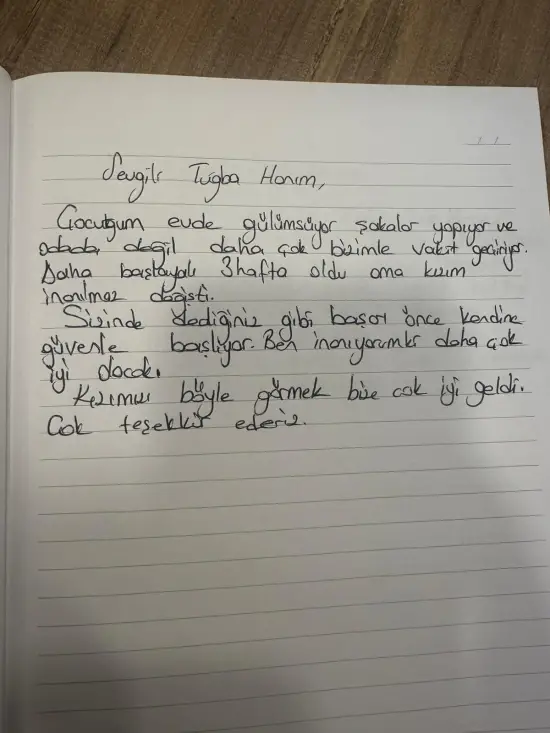 Sevgili Tuğba Hanım,
Çocuğum evde gülümsüyor şakalar yapıyor ve
odada değil daha çok bizimle vakit geçiriyor.
Daha başlayalı 3hafta oldu ama kızım
inanılmaz değişti.
Sizinde dediğiniz gibi başarı önce kendine
güvenle başlıyor. Ben inanıyorumki daha çok
iyi olacak.
Kızımızı böyle görmek bize çok iyi geldi.
Çok teşekkür ederiz.